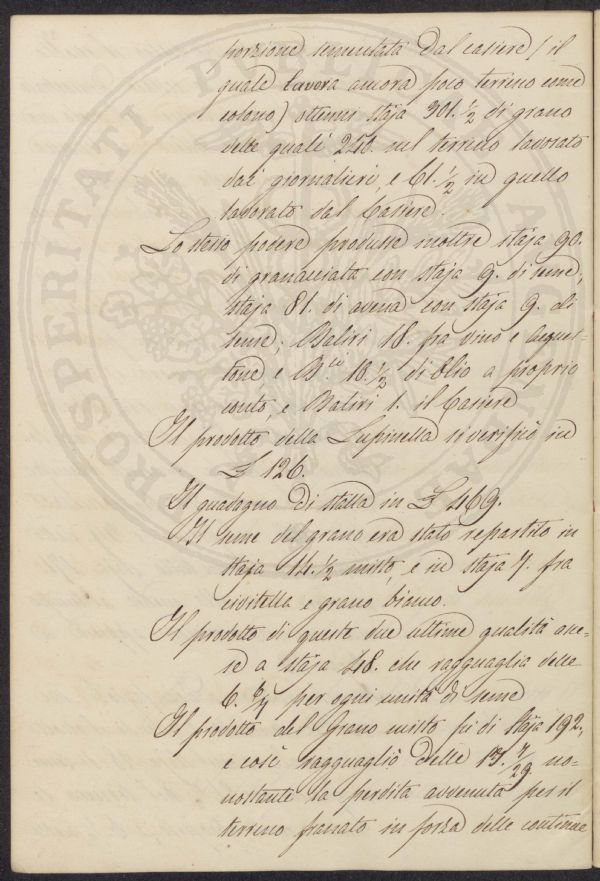 porzione sementata dal casiere / il
quale lavora ancora poco terreno come
colono) ottenni staja 301. 1/2 di grano
delle quali 240. nel terreno lavorato
dai giornalieri, e 61. 1/2 in quello
lavorato dal Casiere.
Lo stesso podere produsse inoltre staja 90.
di granaciata con staja 9. di seme;
staja 81. di avena con staja 9. di
seme; Barili 18. fra vino e acque-
tone e B.li 18. 1/2 di Olio a proprio
conto, e Barili 1. il Casiere
Il prodotto della Lupinella si verificò in
£ 126.
Il guadagno di stalla in £ 469.
Il seme del grano era stato repartito in
staja 14. 1/2 misto, e in staja 7. fra
civitella e grano bianco.
Il prodotto di queste due ultime qualità asce-
se a staja 48. che ragguaglia delle
6. 6/7 per ogni unità di seme
Il prodotto del Grano misto fu di Staja 192,
e così ragguagliò delle 13. 7/29 no-
nostante la perdita avvenuta per il
terreno franato in forza delle continue
PROSPERITATI